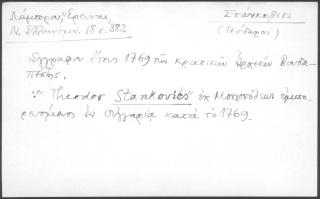 Λάμπρου, Έρευναι,
Ν. Ελληνομν. 18 σ. 382
Στάνκοβιτς
(Θεόδωρος)
έγγραφα έτους 1769 της κρατικών Αρχείων Βουδα-
πέστης.
"Theodor Stankoviés" εκ Μοσχοπόλεως εμπο-
ρευόμενος εν Ουγγαρία κατά το 1769.